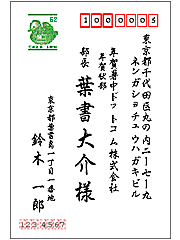 52
1000003
東京都千代田区丸の内二-七-九
ネンガショチュウハガキビル
年賀暑中ドットコム株式会社
年賀状部
部長 葉書大介様
東京都葉書島一丁目一番地
鈴木一郎
1234567